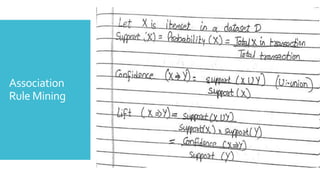 Association
Rule Mining
Let X is itemset in a dataset D
Support (X) = Probability (X) = Total X in transaction
Total transaction
Confidence (X⇒Y) = support (X∪Y) (U:-union)
support (X)
Lift (X⇒Y) = support (X∪Y)
support(X) x support(Y)
= Confidence (X⇒Y)
support (Y)